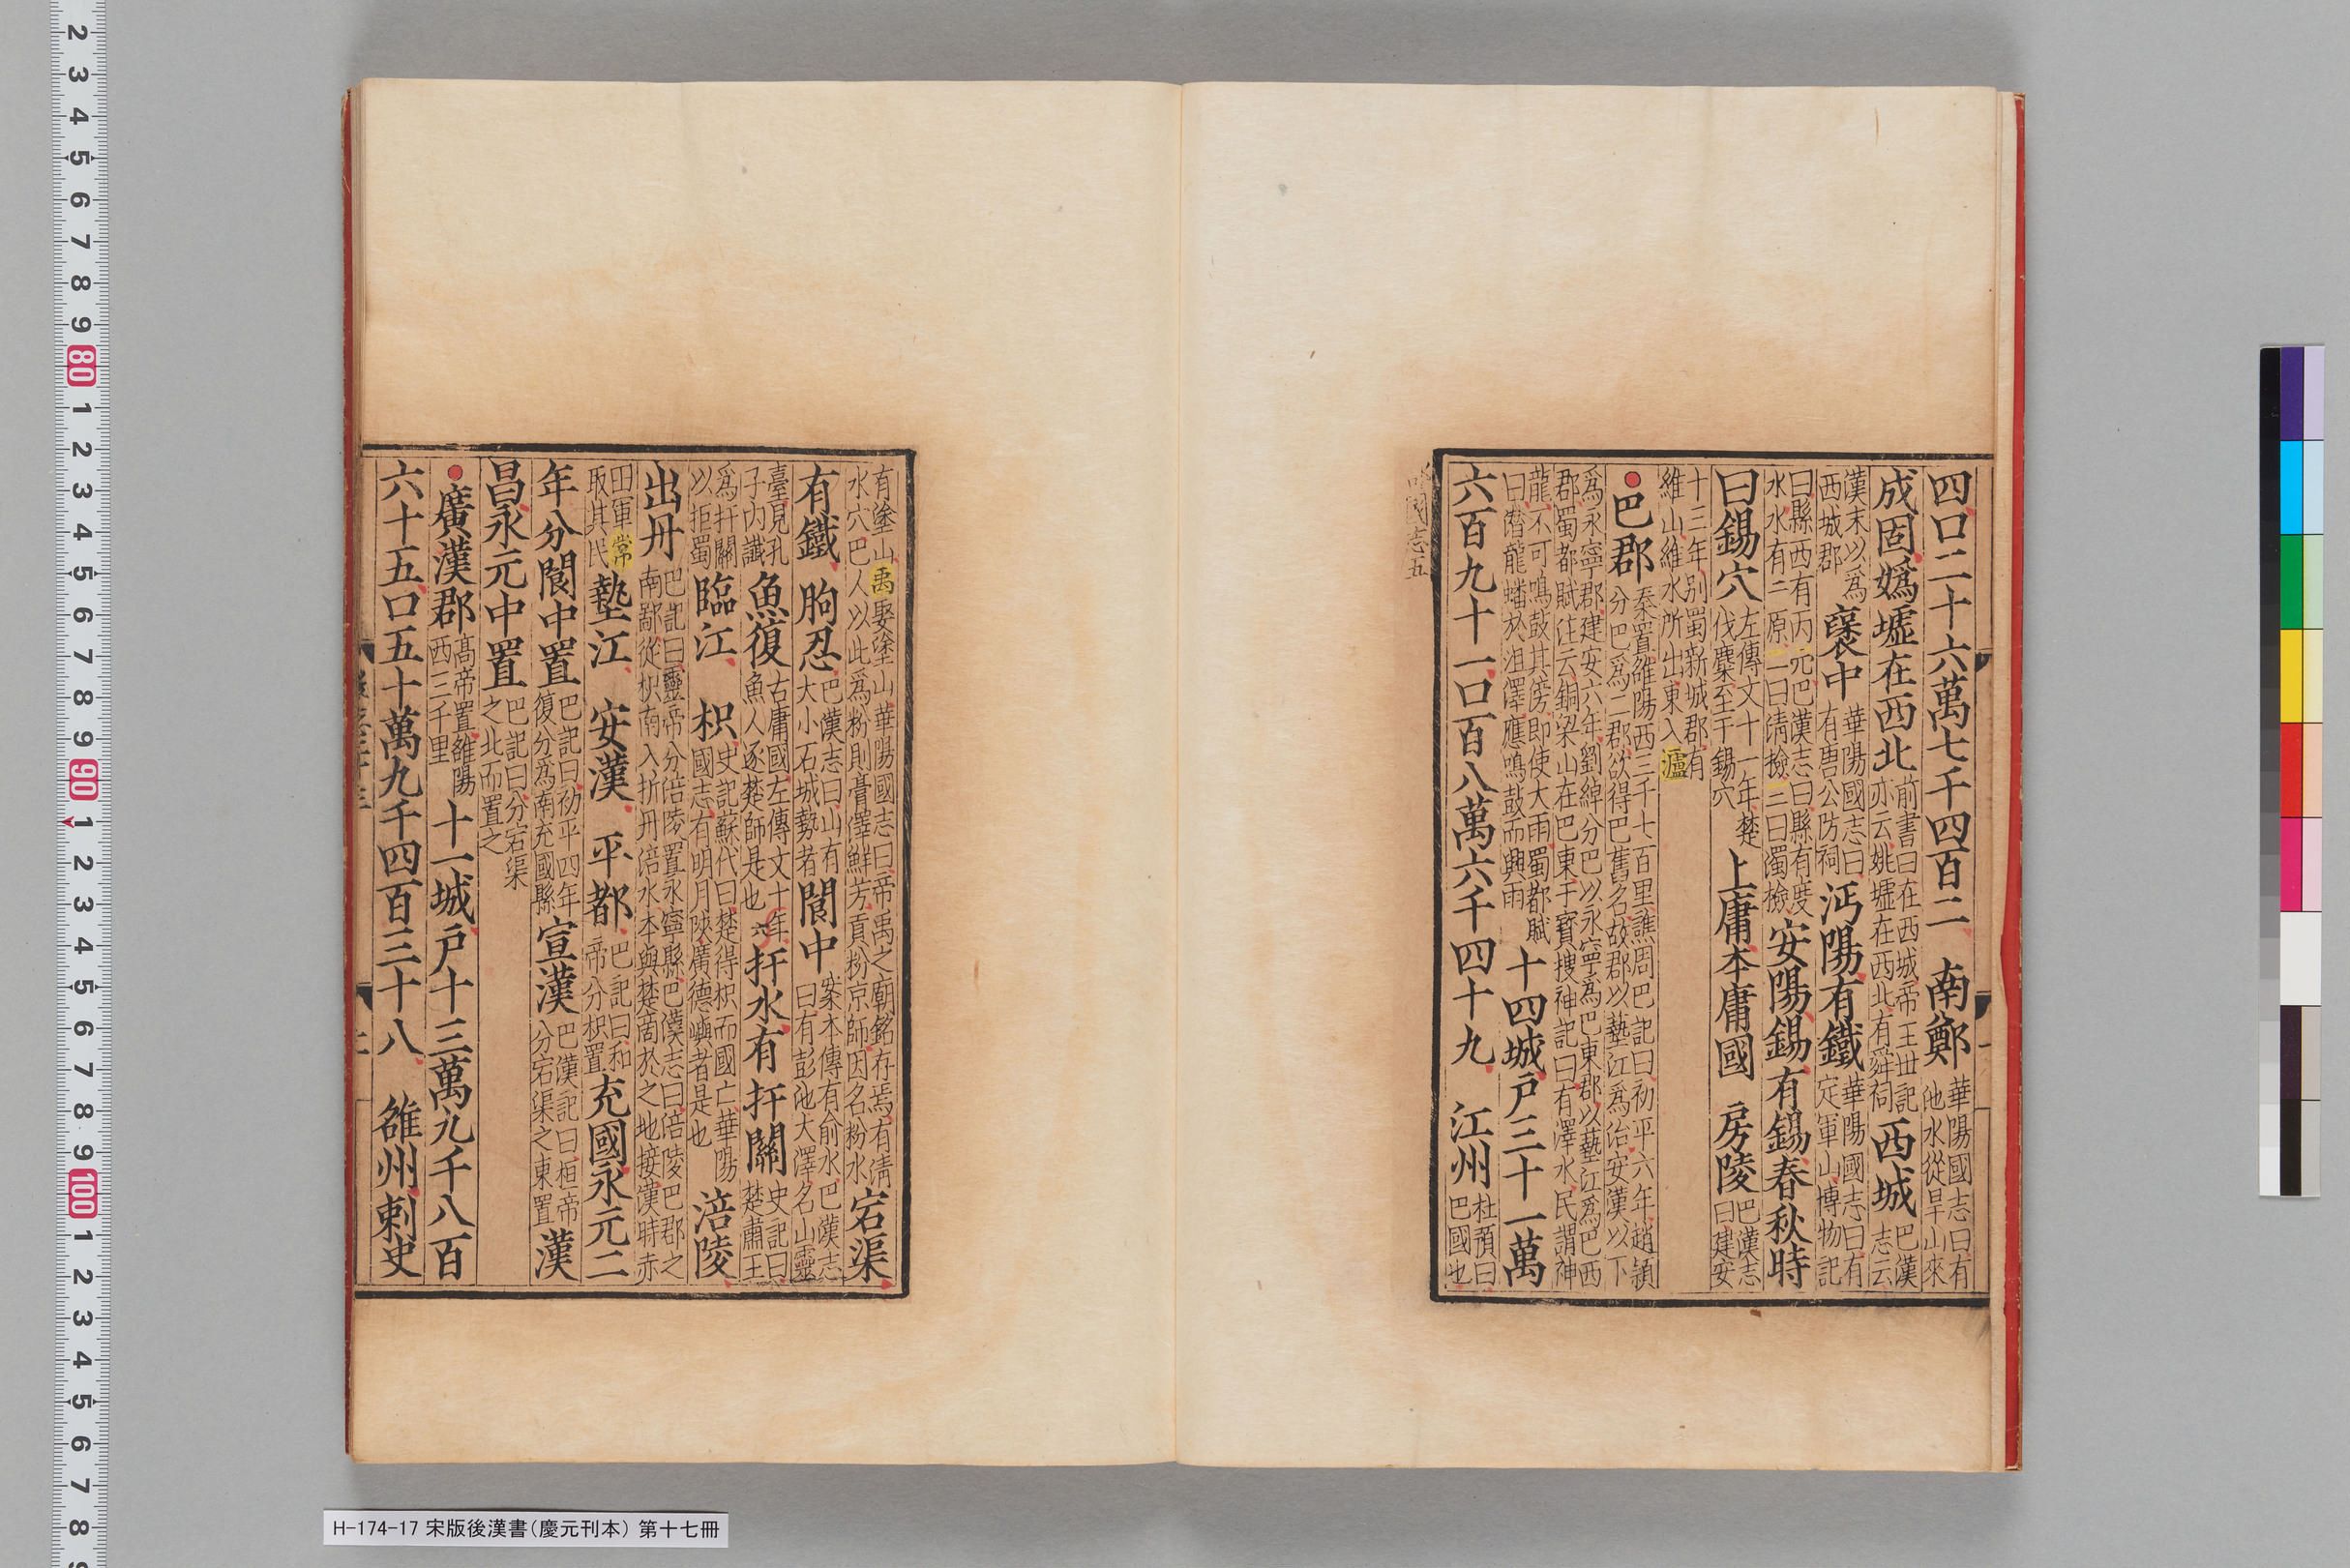 四口二十六萬七千四百二 南鄭 華陽國志曰有池水從旱山來
成固嬀墟在西北 前書曰在西城帝王世記亦云姚墟在西北有舜祠 西城 巴漢志云
漢末以爲西城郡 襃中 華陽國志曰有唐公防祠 沔陽有鐵 華陽國志曰有定軍山博物記
曰縣西有丙巴漢志曰縣有度水水有二原一曰淸撿二曰濁撿 安陽錫有錫春秋時
曰錫穴 左傳文十一年楚伐麋至于錫穴 上庸本庸國 房陵 巴漢志曰建安
十三年別蜀新城郡有維山維水所出東入瀘
巴郡 秦置雒陽西三千七百里譙周巴記曰初平六年趙穎分巴爲二郡欲得巴舊名故郡以墊江爲治安漢以下
爲永寧郡建安六年劉分巴以永寧爲巴東郡以墊江爲巴西郡蜀都賦注云銅梁山在巴東于寶搜神記曰有澤水民謂神
龍不可鳴鼓其傍即使大雨蜀都賦曰潛龍蟠於沮澤應鳴鼓而興雨 十四城戶三十一萬
六百九十一口百八萬六千四十九 江州 杜預曰巴國也
郡國志五
有塗山禹娶塗山華陽國志曰帝禹之廟銘存焉有淸水穴巴人以此爲粉則膏澤鮮芳貢粉京師因名粉水 宕渠
有鐵 朐忍 巴漢志曰山有大小石城勢者 閬中 案本傳有俞水巴漢志曰有彭池大澤名山靈
臺見孔子內讖 魚復 古庸國左傳文十年魚人逐楚師是也 六 扞水有扞關 史記曰楚肅王
爲扞關以拒蜀 臨江 枳 史記蘇代曰楚得枳而國亡華陽國志有明月陝廣德嶼者是也 涪陵
出丹 巴記曰靈帝分涪陵置永寧縣巴漢志曰涪陵巴郡之南鄙從枳南入折丹涪水本與楚商於之地接漢時赤
田軍常取其民 墊江 安漢 平都 巴記曰和帝分枳置 充國永元二
年分閬中置 巴記曰初平四年復分爲南充國縣 宣漢 巴漢記曰桓帝分宕渠之東置 漢
昌永元中置 巴記曰分宕渠之北而置之
廣漢郡 高帝置雒陽西三千里 十一城戶十三萬九千八百
六十五口五十萬九千四百三十八 雒州刺史
H-174-17 宋版後漢書（慶元刊本） 第十七冊
2 3 4 5 6 7 8 9 80 1 2 3 4 5 6 7 8 9 90 1 2 3 4 5 6 7 8 9 100 1 2 3 4 5 6 7 8